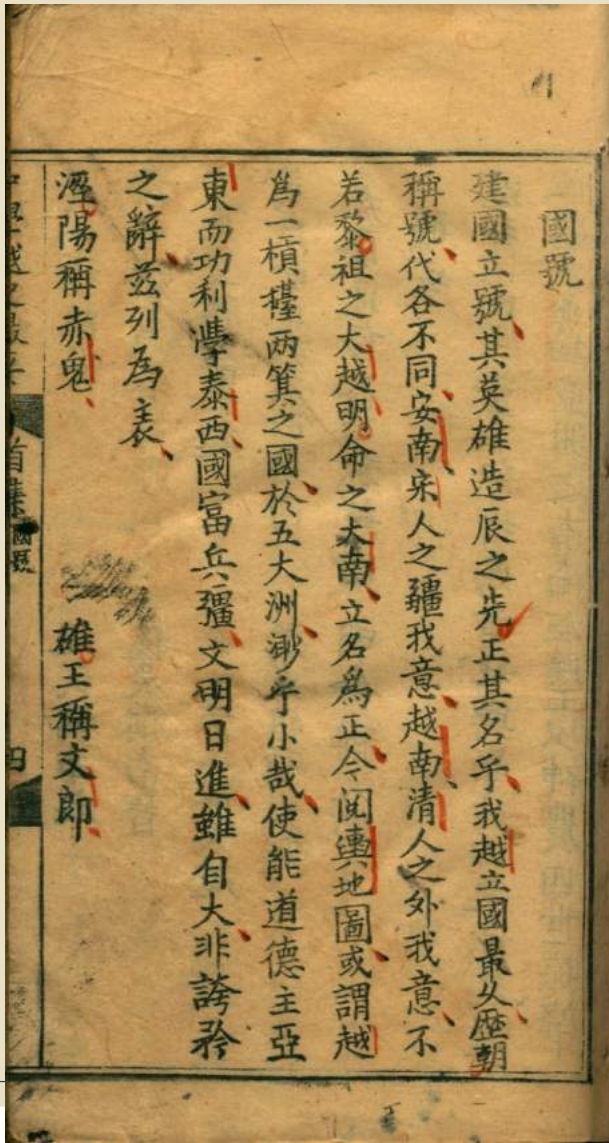 國號
建國立號其英雄造辰之先正其名乎我越立國最久歷朝
稱號代各不同安南宋人之疆我意越南清人之外我意不
若黎祖之大越明命之大南立名爲正今閱輿地圖或謂越
爲一檳榔兩箕之國於五大洲渺乎小哉使能道德主亞
東而功利學泰西國富兵彊文明日進雖自大非誇矜
之辭茲列爲表
涇陽稱赤鬼 雄王稱文郎
越之最 首集 國號 四